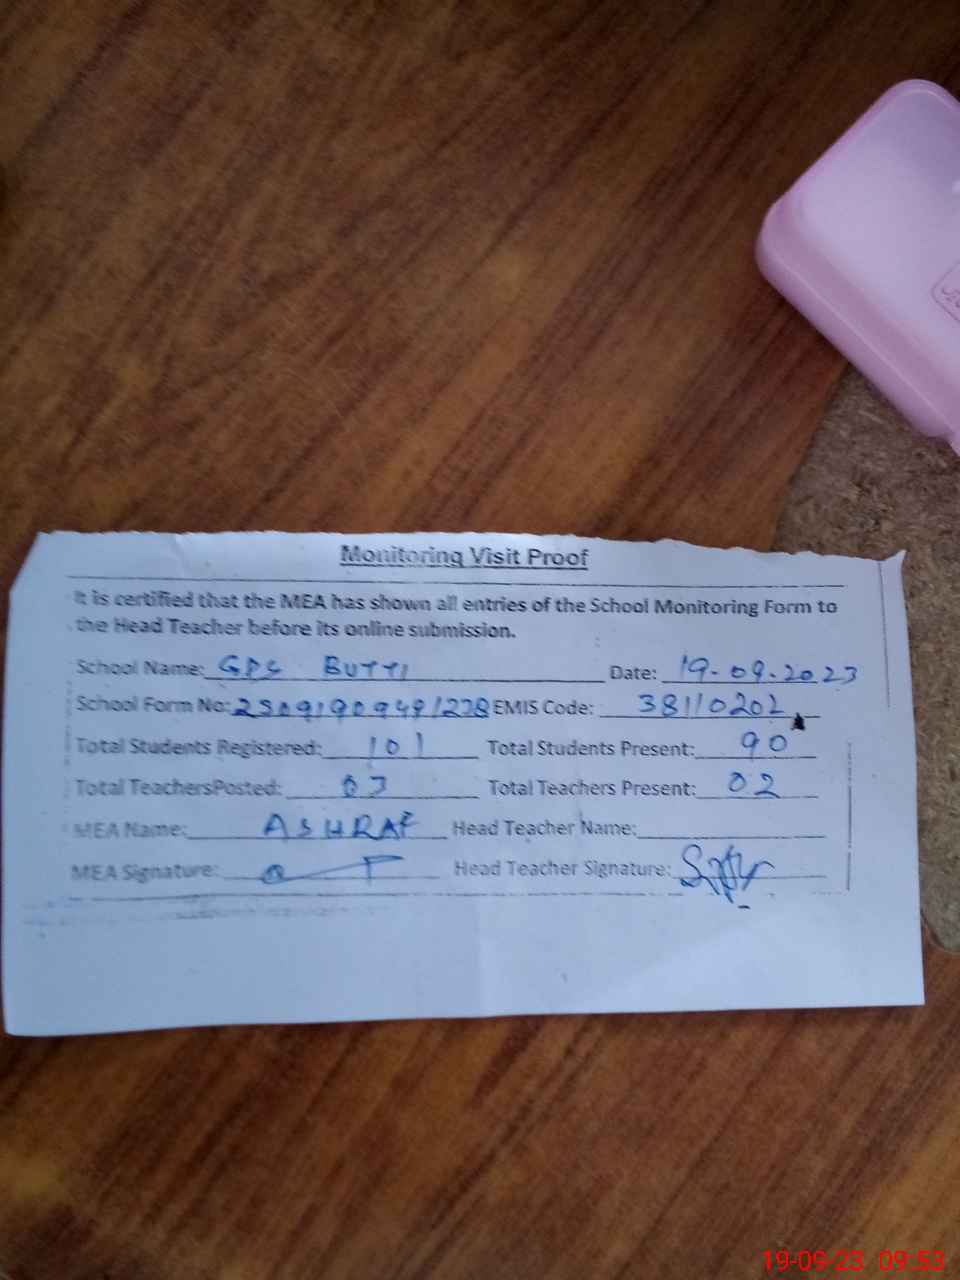 Monitoring Visit Proof
It is certified that the MEA has shown all entries of the School Monitoring Form to
the Head Teacher before its online submission.
School Name: GPS BUTTI Date: 19-09-2023
School Form No: 23091909491278 EMIS Code: 38110202
Total Students Registered: 101 Total Students Present: 90
Total TeachersPosted: 03 Total Teachers Present: 02
MEA Name: ASHRAF Head Teacher Name:
MEA Signature: Head Teacher Signature:
19-09-23 09:53